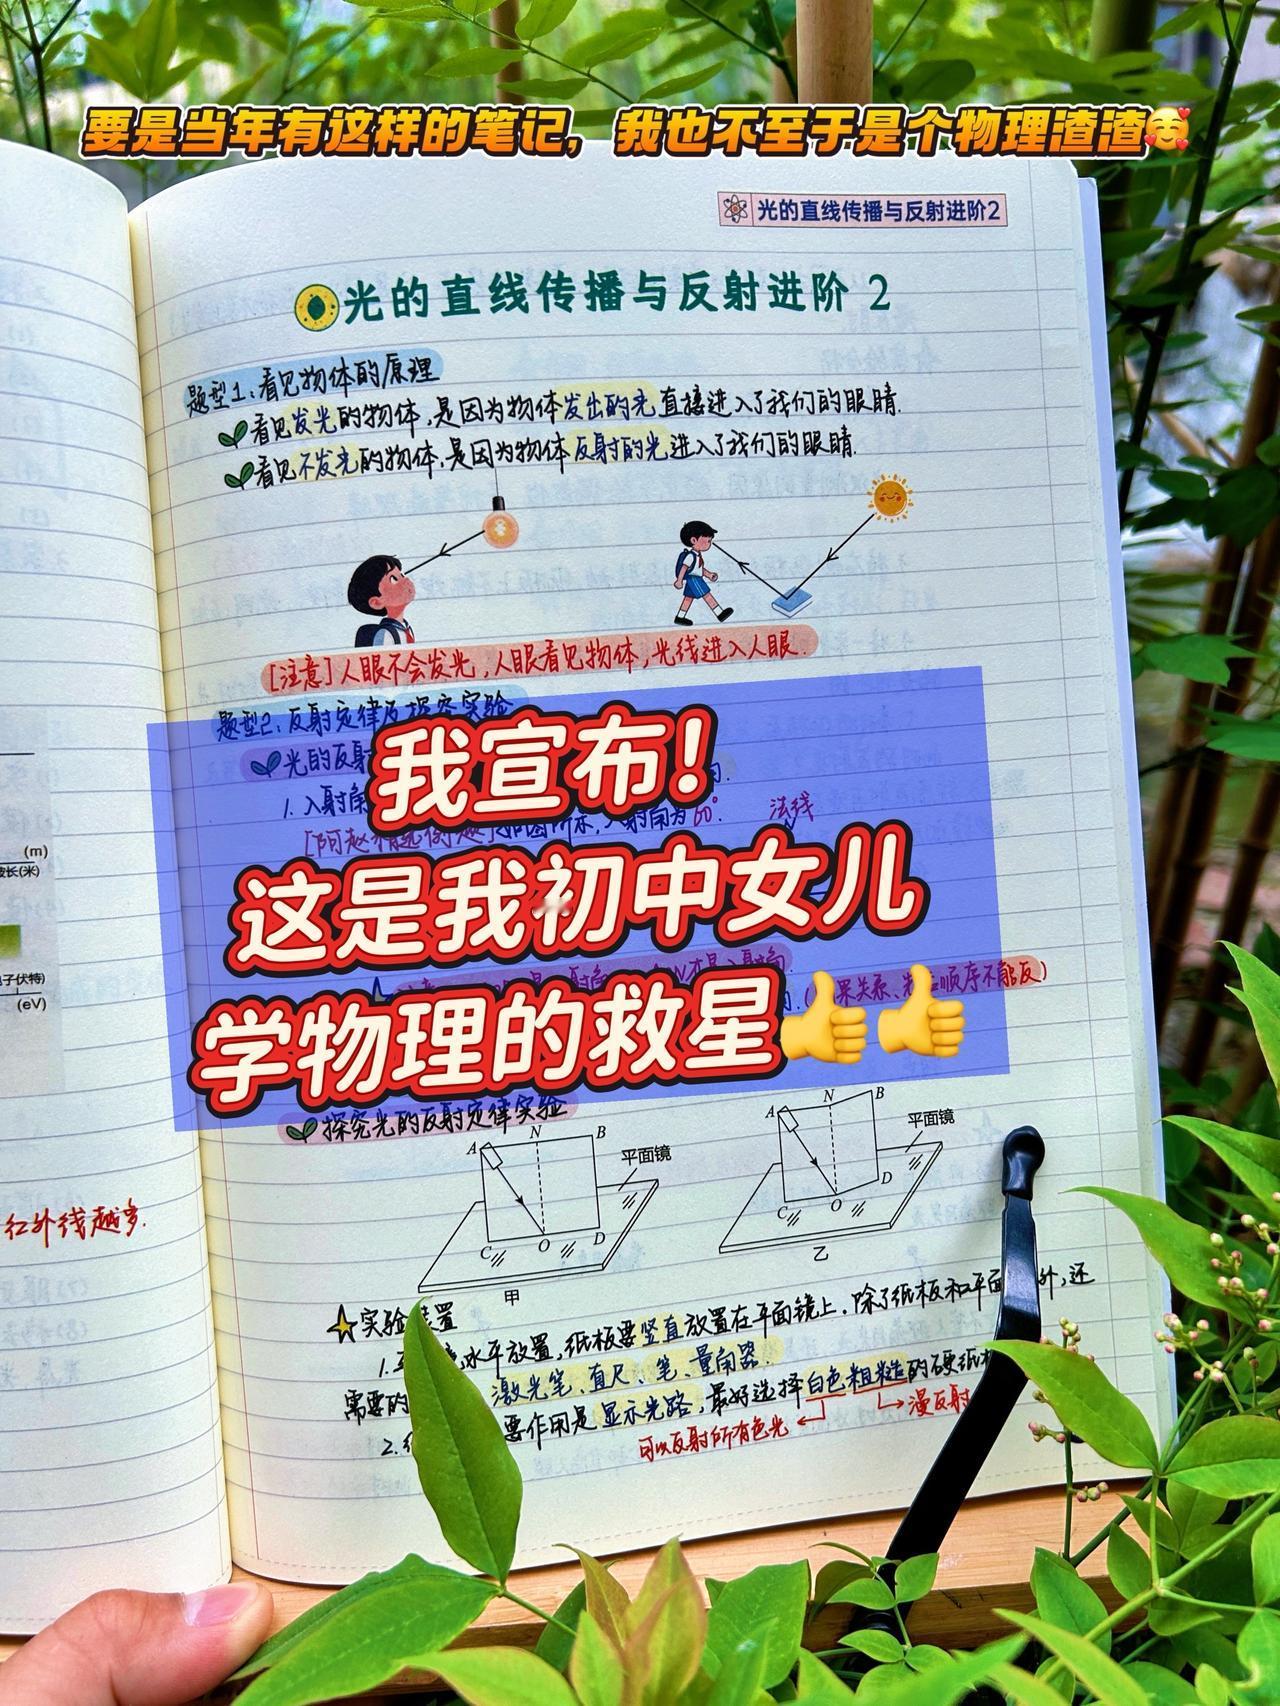 要是当年有这样的笔记，我也不至于是个物理渣渣
光的直线传播与反射进阶2
光的直线传播与反射进阶 2
题型1:看见物体的原理
看见发光的物体,是因为物体发出的光直接进入了我们的眼睛.
看见不发光的物体,是因为物体反射的光进入了我们的眼睛.
[注意]人眼不会发光,人眼看见物体,光线进入人眼.
题型2:反射定律及探究实验
光的反射
1.入射角
入射角为60°.
法线
我宣布！
这是我初中女儿
学物理的救星
顺序不能反)
(m)
波长(米)
(eV)
红外线越多.
探究光的反射定律实验
A N B
平面镜
C O D
甲
A N B
平面镜
C O D
乙
实验装置
水平放置,纸板要竖直放置在平面镜上.除了纸板和平面 外,还
需要的 激光笔、直尺、笔、量角器.
2. 要作用是显示光路,最好选择白色粗糙的硬纸
可以反射所有色光
漫反射